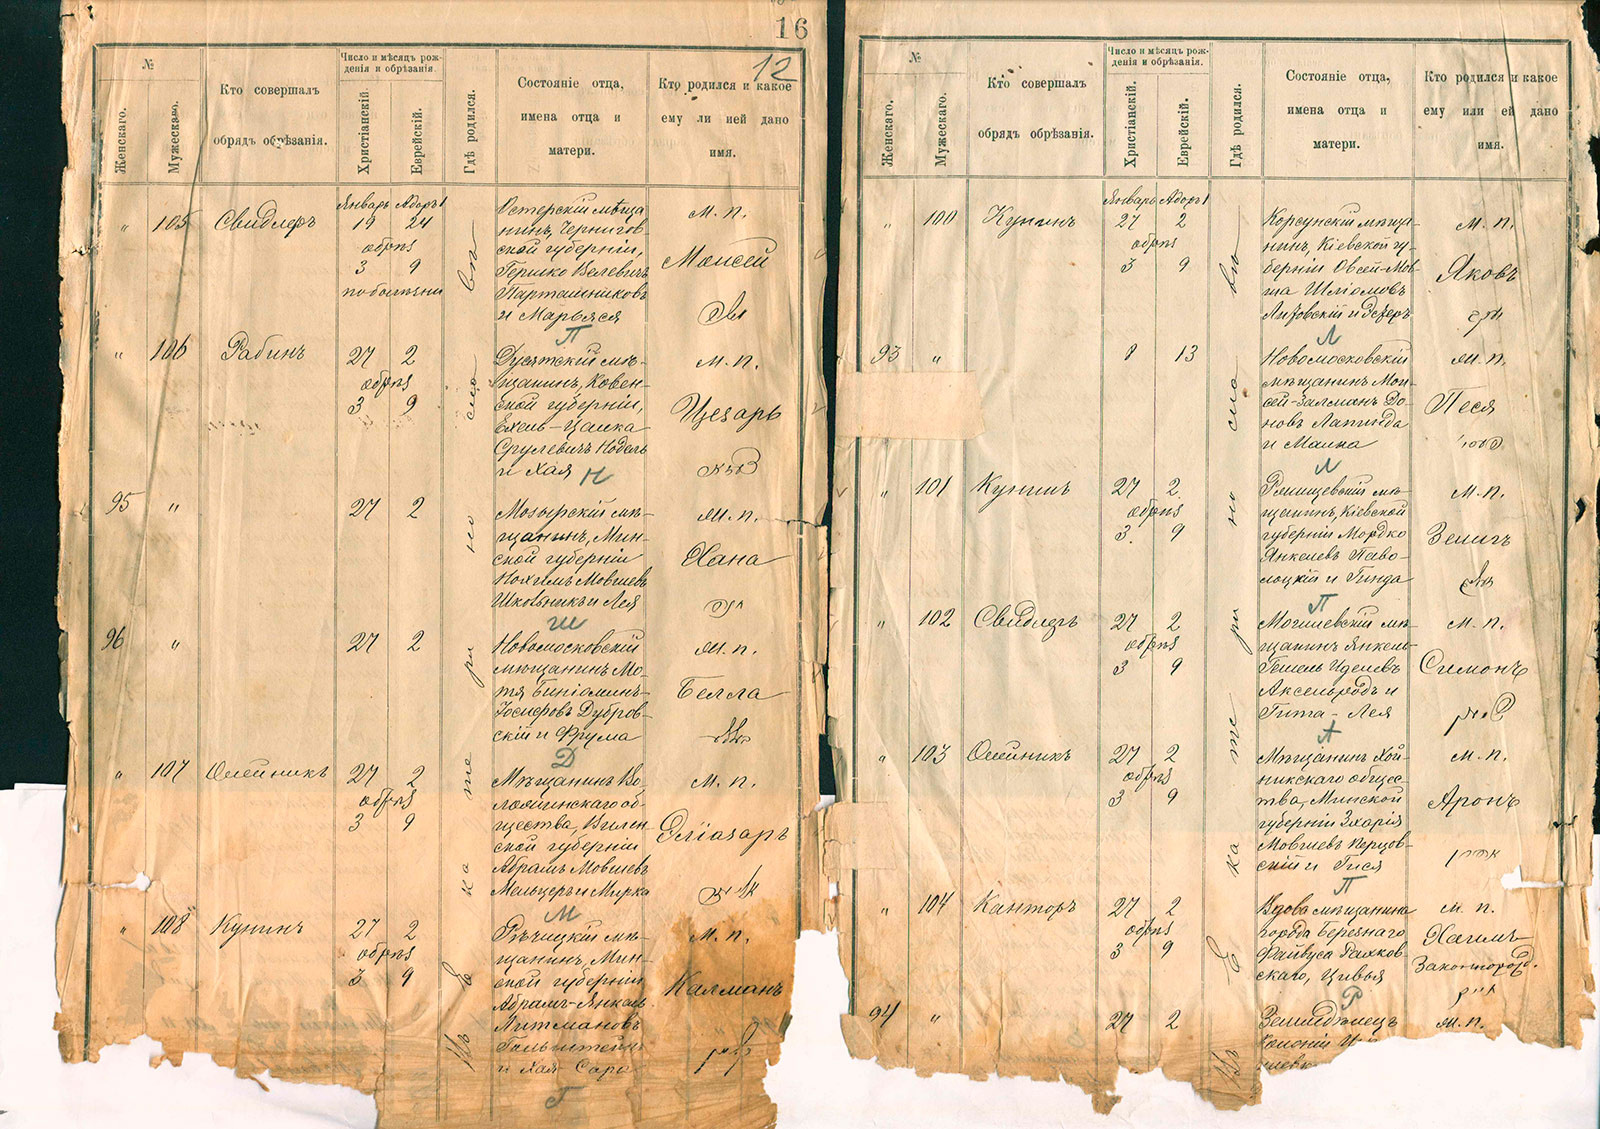 16
12
№
Женскаго.
Мужескаго.
Кто совершалъ
обрядъ обрѣзанія.
Число и мѣсяцъ рож-
денія и обрѣзанія.
Христіанскій.
Еврейскій.
Гдѣ родился.
Состояніе отца,
имена отца и
матери.
Кто родился и какое
ему ли ией дано
имя.
" 105 Свидлеръ
Январь Адоръ 1
19 24
обрѣз
3 9
по болѣзни
Остерскій мѣща
нинъ, Чернигов-
ской губерніи,
Гершко Велевичъ
Парташниковъ
и Марьяся
м. п.
Моисей
П
" 106 Рабинъ
27 2
обрѣз
3 9
Дусятскій мѣ-
щанинъ, Ковен-
ской губерніи,
Ехель-Цалка
Срулевичъ Нодель
и Хая
м. п.
Цезарь
Н
95 "
27 2
Мозырскій мѣ-
щанинъ, Мин-
ской губерніи
Нохимъ Мовшевъ
Школьникъ и Лея
м. п.
Хана
Ш
96 "
27 2
Новомосковскій
мѣщанинъ Мо-
тя Биніоминъ-
Іосифовъ Дубров-
скій и Фрума
м. п.
Белла
Д
" 107 Олейникъ
27 2
обрѣз
3 9
Мѣщанинъ Во-
ложинскаго об-
щества, Вилен-
ской губерніи
Абрамъ Мовшевъ
Мельцеръ и Мирка
м. п.
Эліазаръ
М
" 108 Кунинъ
27 2
обрѣз
3 9
Рѣчицкій мѣ-
щанинъ, Мин-
ской губерніи
Абрамъ-Янкель
Литмановъ
Гольштейнъ
и Хая Сара
м. п.
Калманъ
Г
Въ Екатеринославѣ
№
Женскаго.
Мужескаго.
Кто совершалъ
обрядъ обрѣзанія.
Число и мѣсяцъ рож-
денія и обрѣзанія.
Христіанскій.
Еврейскій.
Гдѣ родился.
Состояніе отца,
имена отца и
матери.
Кто родился и какое
ему или ей дано
имя.
" 100 Кунинъ
Январь Адоръ 1
27 2
обрѣз
3 9
Корсунскій мѣща-
нинъ, Кіевской гу-
берніи Овсей-Мов-
ша Шліомовъ
Литовскій и Эстеръ
м. п.
Яковъ
Л
93 "
13
Новомосковскій
мѣщанинъ Мои-
сей-Залманъ До-
новъ Лапинда
и Малка
м. п.
Песя
Л
" 101 Кунинъ
27 2
обрѣз
3. 9
Ржищевскій мѣ-
щанинъ, Кіевской
губерніи Мордко
Янкелевъ Паво-
лоцкій и Гинда
м. п.
Зелигъ
П
" 102 Свидлеръ
27 2
обрѣз
3 9
Могилевскій мѣ-
щанинъ Янкель-
Гешель Иделевъ
Аксельродъ и
Гита-Лея
м. п.
Симонъ
А
" 103 Олейникъ
27 2
обрѣз
3 9
Мѣщанинъ Хой-
никскаго общес-
тва, Минской
губерніи Захарія
Мовшевъ Перцов-
скій и Гися
м. п.
Аронъ
П
" 104 Канторъ
27 2
обрѣз
3 9
Вдова мѣщанина
города Березнаго
Файвуса Рахков-
скаго, Цивья
м. п.
Хаимъ-
Законнорожд.
Р
94 "
27 2
Земледѣлецъ
колоніи
м. п.
Въ Екатеринославѣ